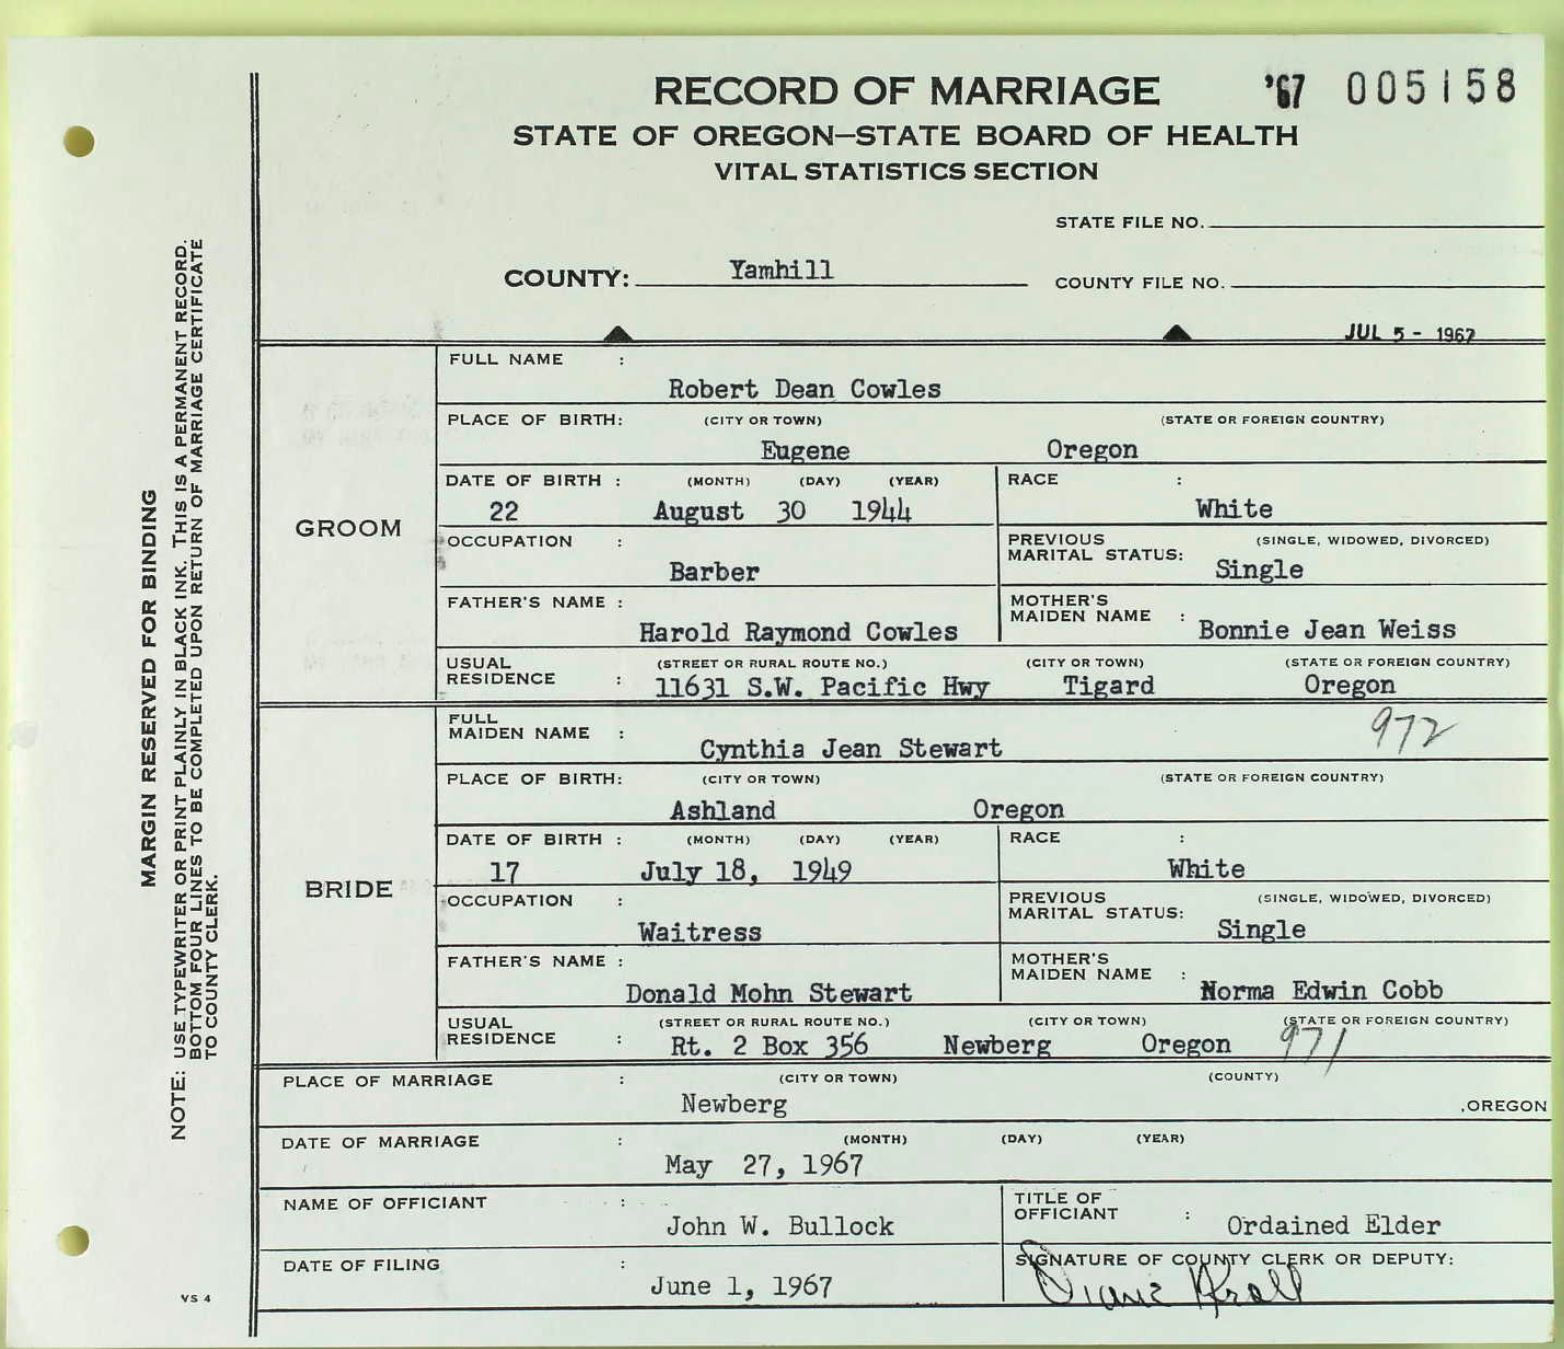 RECORD OF MARRIAGE '67 005158
STATE OF OREGON—STATE BOARD OF HEALTH
VITAL STATISTICS SECTION
STATE FILE NO.
COUNTY: Yamhill COUNTY FILE NO.
JUL 5 - 1967
GROOM
FULL NAME :
Robert Dean Cowles
PLACE OF BIRTH: (CITY OR TOWN) (STATE OR FOREIGN COUNTRY)
Eugene Oregon
DATE OF BIRTH : (MONTH) (DAY) (YEAR) RACE :
22 August 30 1944 White
OCCUPATION : PREVIOUS (SINGLE, WIDOWED, DIVORCED)
MARITAL STATUS:
Barber Single
FATHER'S NAME : MOTHER'S
MAIDEN NAME :
Harold Raymond Cowles Bonnie Jean Weiss
USUAL (STREET OR RURAL ROUTE NO.) (CITY OR TOWN) (STATE OR FOREIGN COUNTRY)
RESIDENCE : 11631 S.W. Pacific Hwy Tigard Oregon
BRIDE
FULL
MAIDEN NAME : 972
Cynthia Jean Stewart
PLACE OF BIRTH: (CITY OR TOWN) (STATE OR FOREIGN COUNTRY)
Ashland Oregon
DATE OF BIRTH : (MONTH) (DAY) (YEAR) RACE :
17 July 18, 1949 White
OCCUPATION : PREVIOUS (SINGLE, WIDOWED, DIVORCED)
MARITAL STATUS:
Waitress Single
FATHER'S NAME : MOTHER'S
MAIDEN NAME :
Donald Mohn Stewart Norma Edwin Cobb
USUAL (STREET OR RURAL ROUTE NO.) (CITY OR TOWN) (STATE OR FOREIGN COUNTRY)
RESIDENCE : Rt. 2 Box 356 Newberg Oregon 971
PLACE OF MARRIAGE : (CITY OR TOWN) (COUNTY)
Newberg ,OREGON
DATE OF MARRIAGE : (MONTH) (DAY) (YEAR)
May 27, 1967
NAME OF OFFICIANT : TITLE OF
OFFICIANT :
John W. Bullock Ordained Elder
DATE OF FILING : SIGNATURE OF COUNTY CLERK OR DEPUTY:
June 1, 1967 Diane Krall
MARGIN RESERVED FOR BINDING
NOTE: USE TYPEWRITER OR PRINT PLAINLY IN BLACK INK. THIS IS A PERMANENT RECORD.
BOTTOM FOUR LINES TO BE COMPLETED UPON RETURN OF MARRIAGE CERTIFICATE
TO COUNTY CLERK.
VS 4